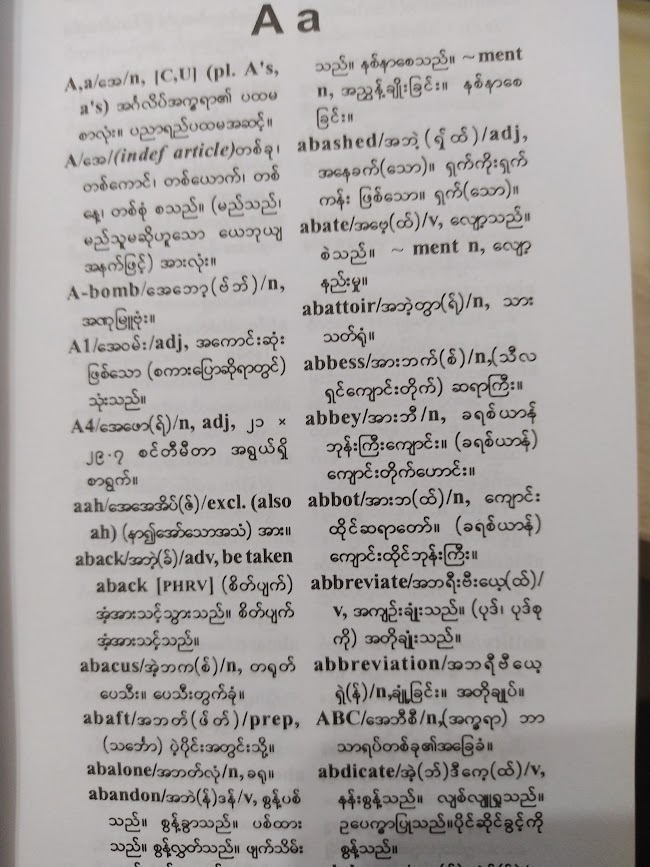 A a
A,a/အေ/n, [C,U] (pl. A's,
a's) အင်္ဂလိပ်အက္ခရာ၏ ပထမ
စာလုံး။ ပညာရည်ပထမအဆင့်။
A/အေ/(indef article)တစ်ခု၊
တစ်ကောင်၊ တစ်ယောက်၊ တစ်
နေ့၊ တစ်စုံ စသည်။ (မည်သည်၊
မည်သူမဆိုဟူသော ယေဘုယျ
အနက်ဖြင့်) အားလုံး။
A-bomb/အေဘော့(ဗ်ဘ်)/n,
အဏုမြူဗုံး။
A1/အေဝမ်း/adj, အကောင်းဆုံး
ဖြစ်သော (စကားပြောဆိုရာတွင်)
သုံးသည်။
A4/အေဖော(ရ်)/n, adj, ၂၁ ×
၂၉.၇ စင်တီမီတာ အရွယ်ရှိ
စာရွက်။
aah/အေအေအိပ်(ဇ်)/excl. (also
ah) (နာ၍အော်သောအသံ) အား။
aback/အဘဲ့(ခ်)/adv, be taken
aback [PHRV] (စိတ်ပျက်)
အံ့အားသင့်သွားသည်။ စိတ်ပျက်
အံ့အားသင့်သည်။
abacus/အဲ့ဘက(စ်)/n, တရုတ်
ပေသီး။ ပေသီးတွက်ခုံ။
abaft/အဘတ်(ဖ်တ်)/prep,
(သင်္ဘော) ပဲ့ပိုင်းအတွင်းသို့။
abalone/အဘတ်လုံ/n, ခရု။
abandon/အဘဲ(န်)ဒန်/v, စွန့်ပစ်
သည်။ စွန့်ခွာသည်။ ပစ်ထား
သည်။ စွန့်လွှတ်သည်။ ဖျက်သိမ်း
သည်။ နစ်နာစေသည်။ ~ ment
n, အညွှန့်ချိုးခြင်း။ နစ်နာစေ
ခြင်း။
abashed/အဘဲ့(ရှ်ထ်)/adj,
အနေခက်(သော)။ ရှက်ကိုးရှက်
ကန်း ဖြစ်သော။ ရှက်(သော)။
abate/အဗေ့(ထ်)/v, လျော့သည်။
စဲသည်။ ~ ment n, လျော့
နည်းမှု။
abattoir/အဘဲ့တွာ(ရ်)/n, သား
သတ်ရုံ။
abbess/အားဘက်(စ်)/n,(သီလ
ရှင်ကျောင်းတိုက်) ဆရာကြီး။
abbey/အားဘီ/n, ခရစ်ယာန်
ဘုန်းကြီးကျောင်း။ (ခရစ်ယာန်)
ကျောင်းတိုက်ဟောင်း။
abbot/အားဘ(ထ်)/n, ကျောင်း
ထိုင်ဆရာတော်။ (ခရစ်ယာန်)
ကျောင်းထိုင်ဘုန်းကြီး။
abbreviate/အဘရီးဗီးယေ့(ထ်)/
v, အကျဉ်းချုံးသည်။ (ပုဒ်၊ ပုဒ်စု
ကို) အတိုချုံးသည်။
abbreviation/အဘရီဗီယေ့
ရှဲ(န်)/n,ချုံ့ခြင်း။ အတိုချုပ်။
ABC/အေဘီစီ/n,(အက္ခရာ) ဘာ
သာရပ်တစ်ခု၏အခြေခံ။
abdicate/အဲ့(ဘ်)ဒီကေ့(ထ်)/v,
နန်းစွန့်သည်။ လျစ်လျူရှုသည်။
ဥပေက္ခာပြုသည်။ပိုင်ဆိုင်ခွင့်ကို
စွန့်သည်။